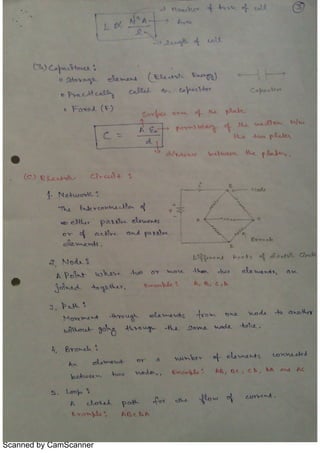 → Number of turns of coil
③
L ∝ N² A
ℓ
→ Area
→ length of coil
(iii) Capacitance :
• Storage element (Electric Energy)
• Practically called as capacitor
Capacitor
• Farad (F)
Surface area of the plate
C = A ε₀
d
→ permittivity of the medium b/w
the two plates
→ distance between the plates.
(c) Electric Circuits :
1. Network :
The Interconnection of
either passive elements
or of active and passive
elements.
Node
Branch
Different parts of electric Circuit
2. Node :
A Point where two or more than two elements, are
joined together. Example : A, B, C, D
3. Path :
Movement through elements from one node to another
without going through the same node twice.
4. Branch :
An element or a number of elements connected
between two nodes. Example : AB, BC, CD, DA and AC
5. Loop :
A closed path for the flow of current.
Example : ABCDA
Scanned by CamScanner